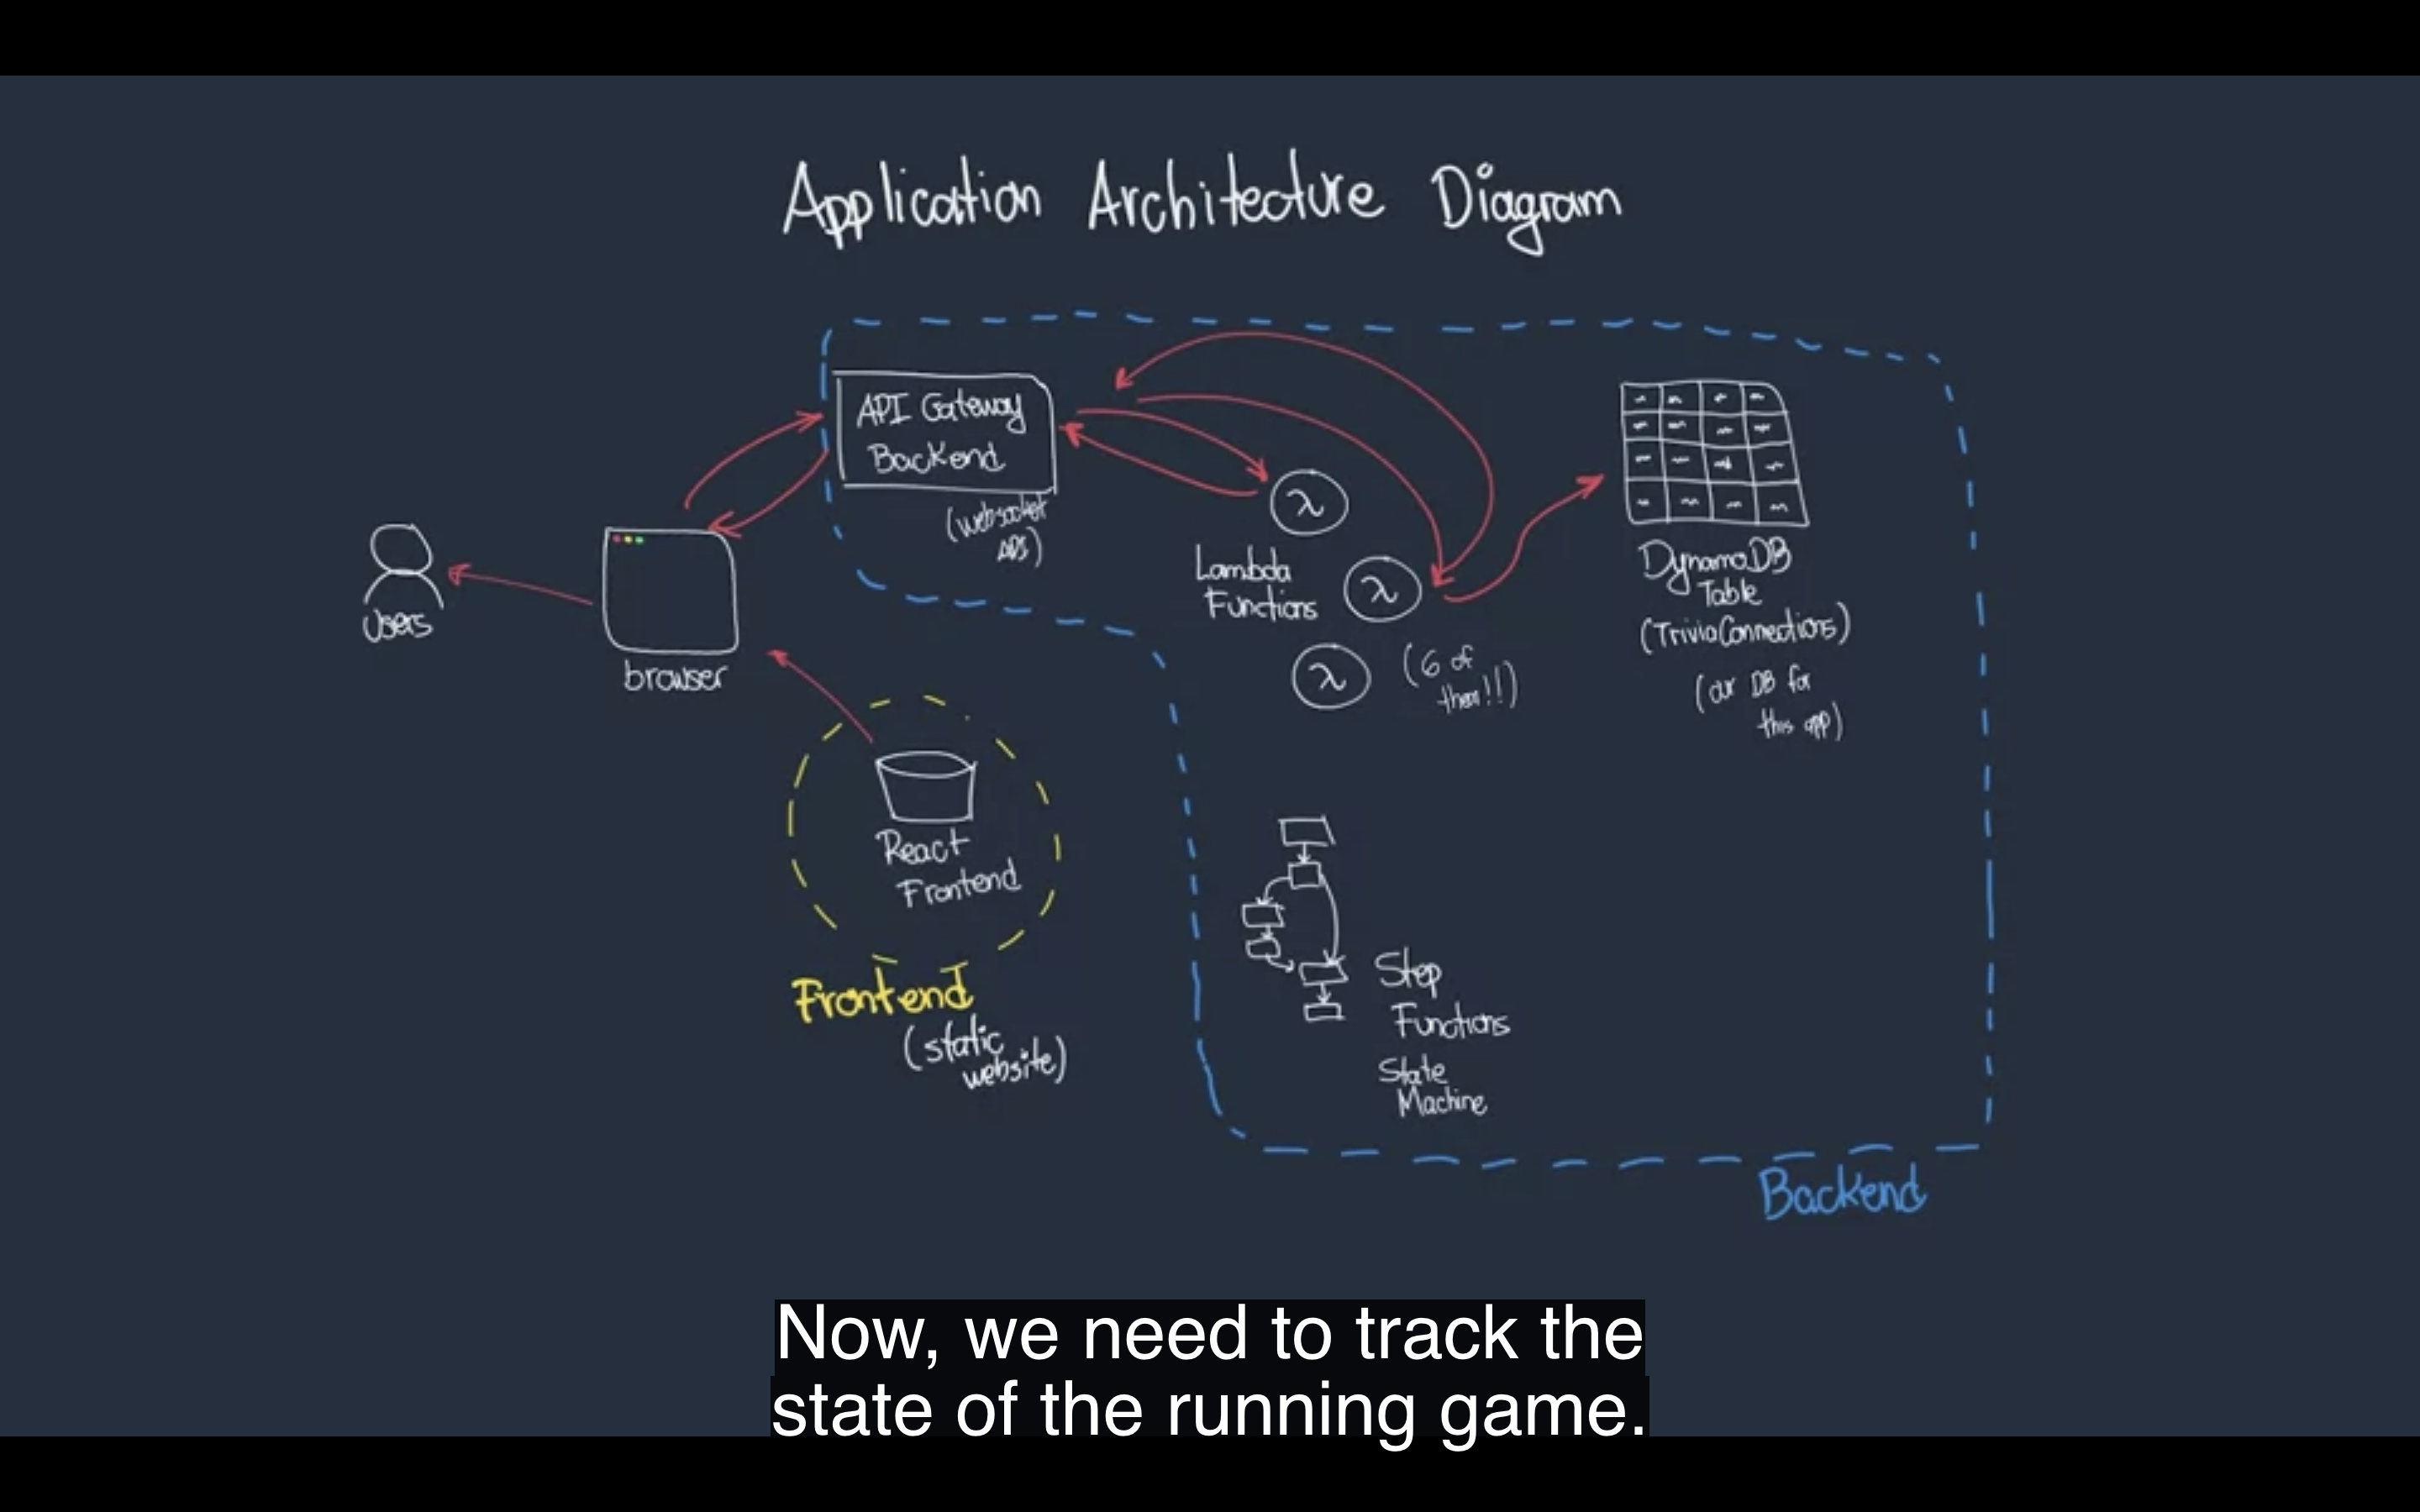 Application Architecture Diagram
API Gateway
Backend
(websocket
API)
Users
browser
λ
Lambda
Functions
λ
λ
(6 of
them!!)
DynamoDB
Table
(TriviaConnections)
(our DB for
this app)
React
Frontend
Frontend
(static
website)
Step
Functions
State
Machine
Backend
Now, we need to track the
state of the running game.